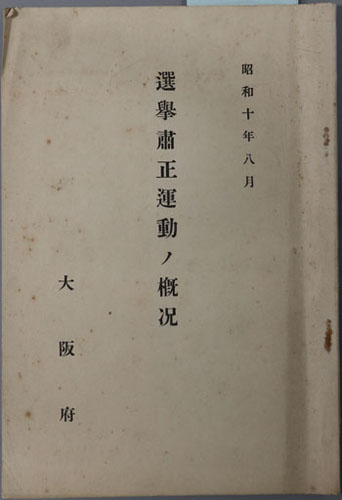 昭和十年八月
選擧肅正運動ノ概况
大阪府